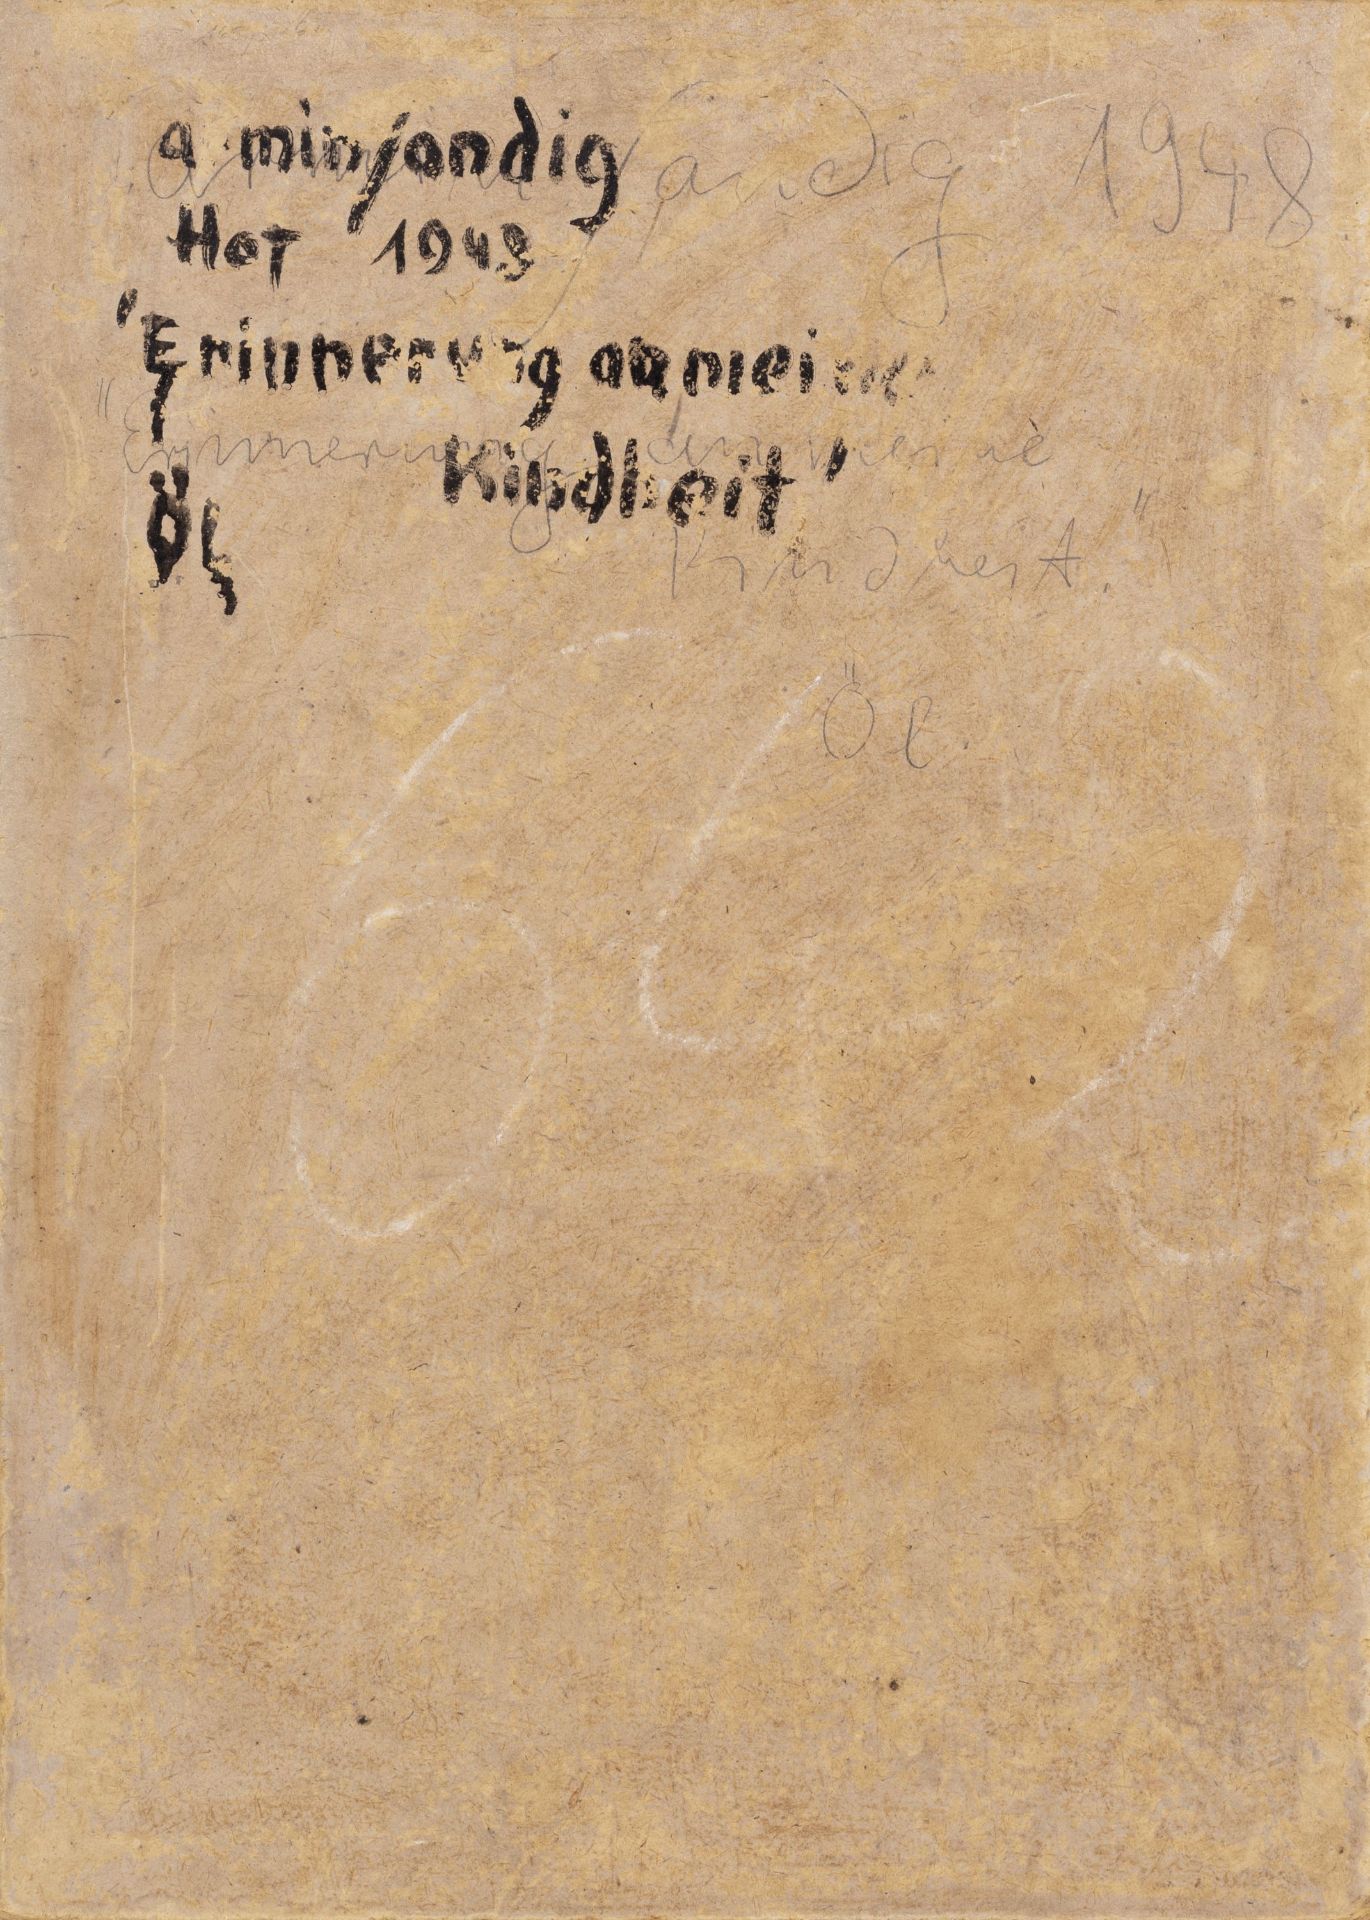 a minjandig
Hot 1948
'Erinnerung an meine
Kindheit'
Öl
a minjandig 1948
"Erinnerung an meine
Kindheit."
Öl.